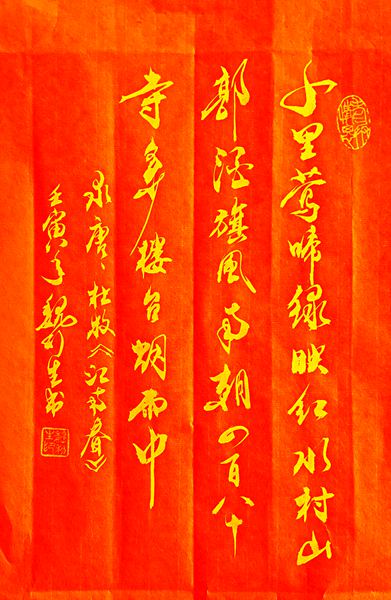 千里莺啼绿映红水村山
郭酒旗风南朝四百八十
寺多少楼台烟雨中
录唐、杜牧《江南春》
壬寅年魏生书